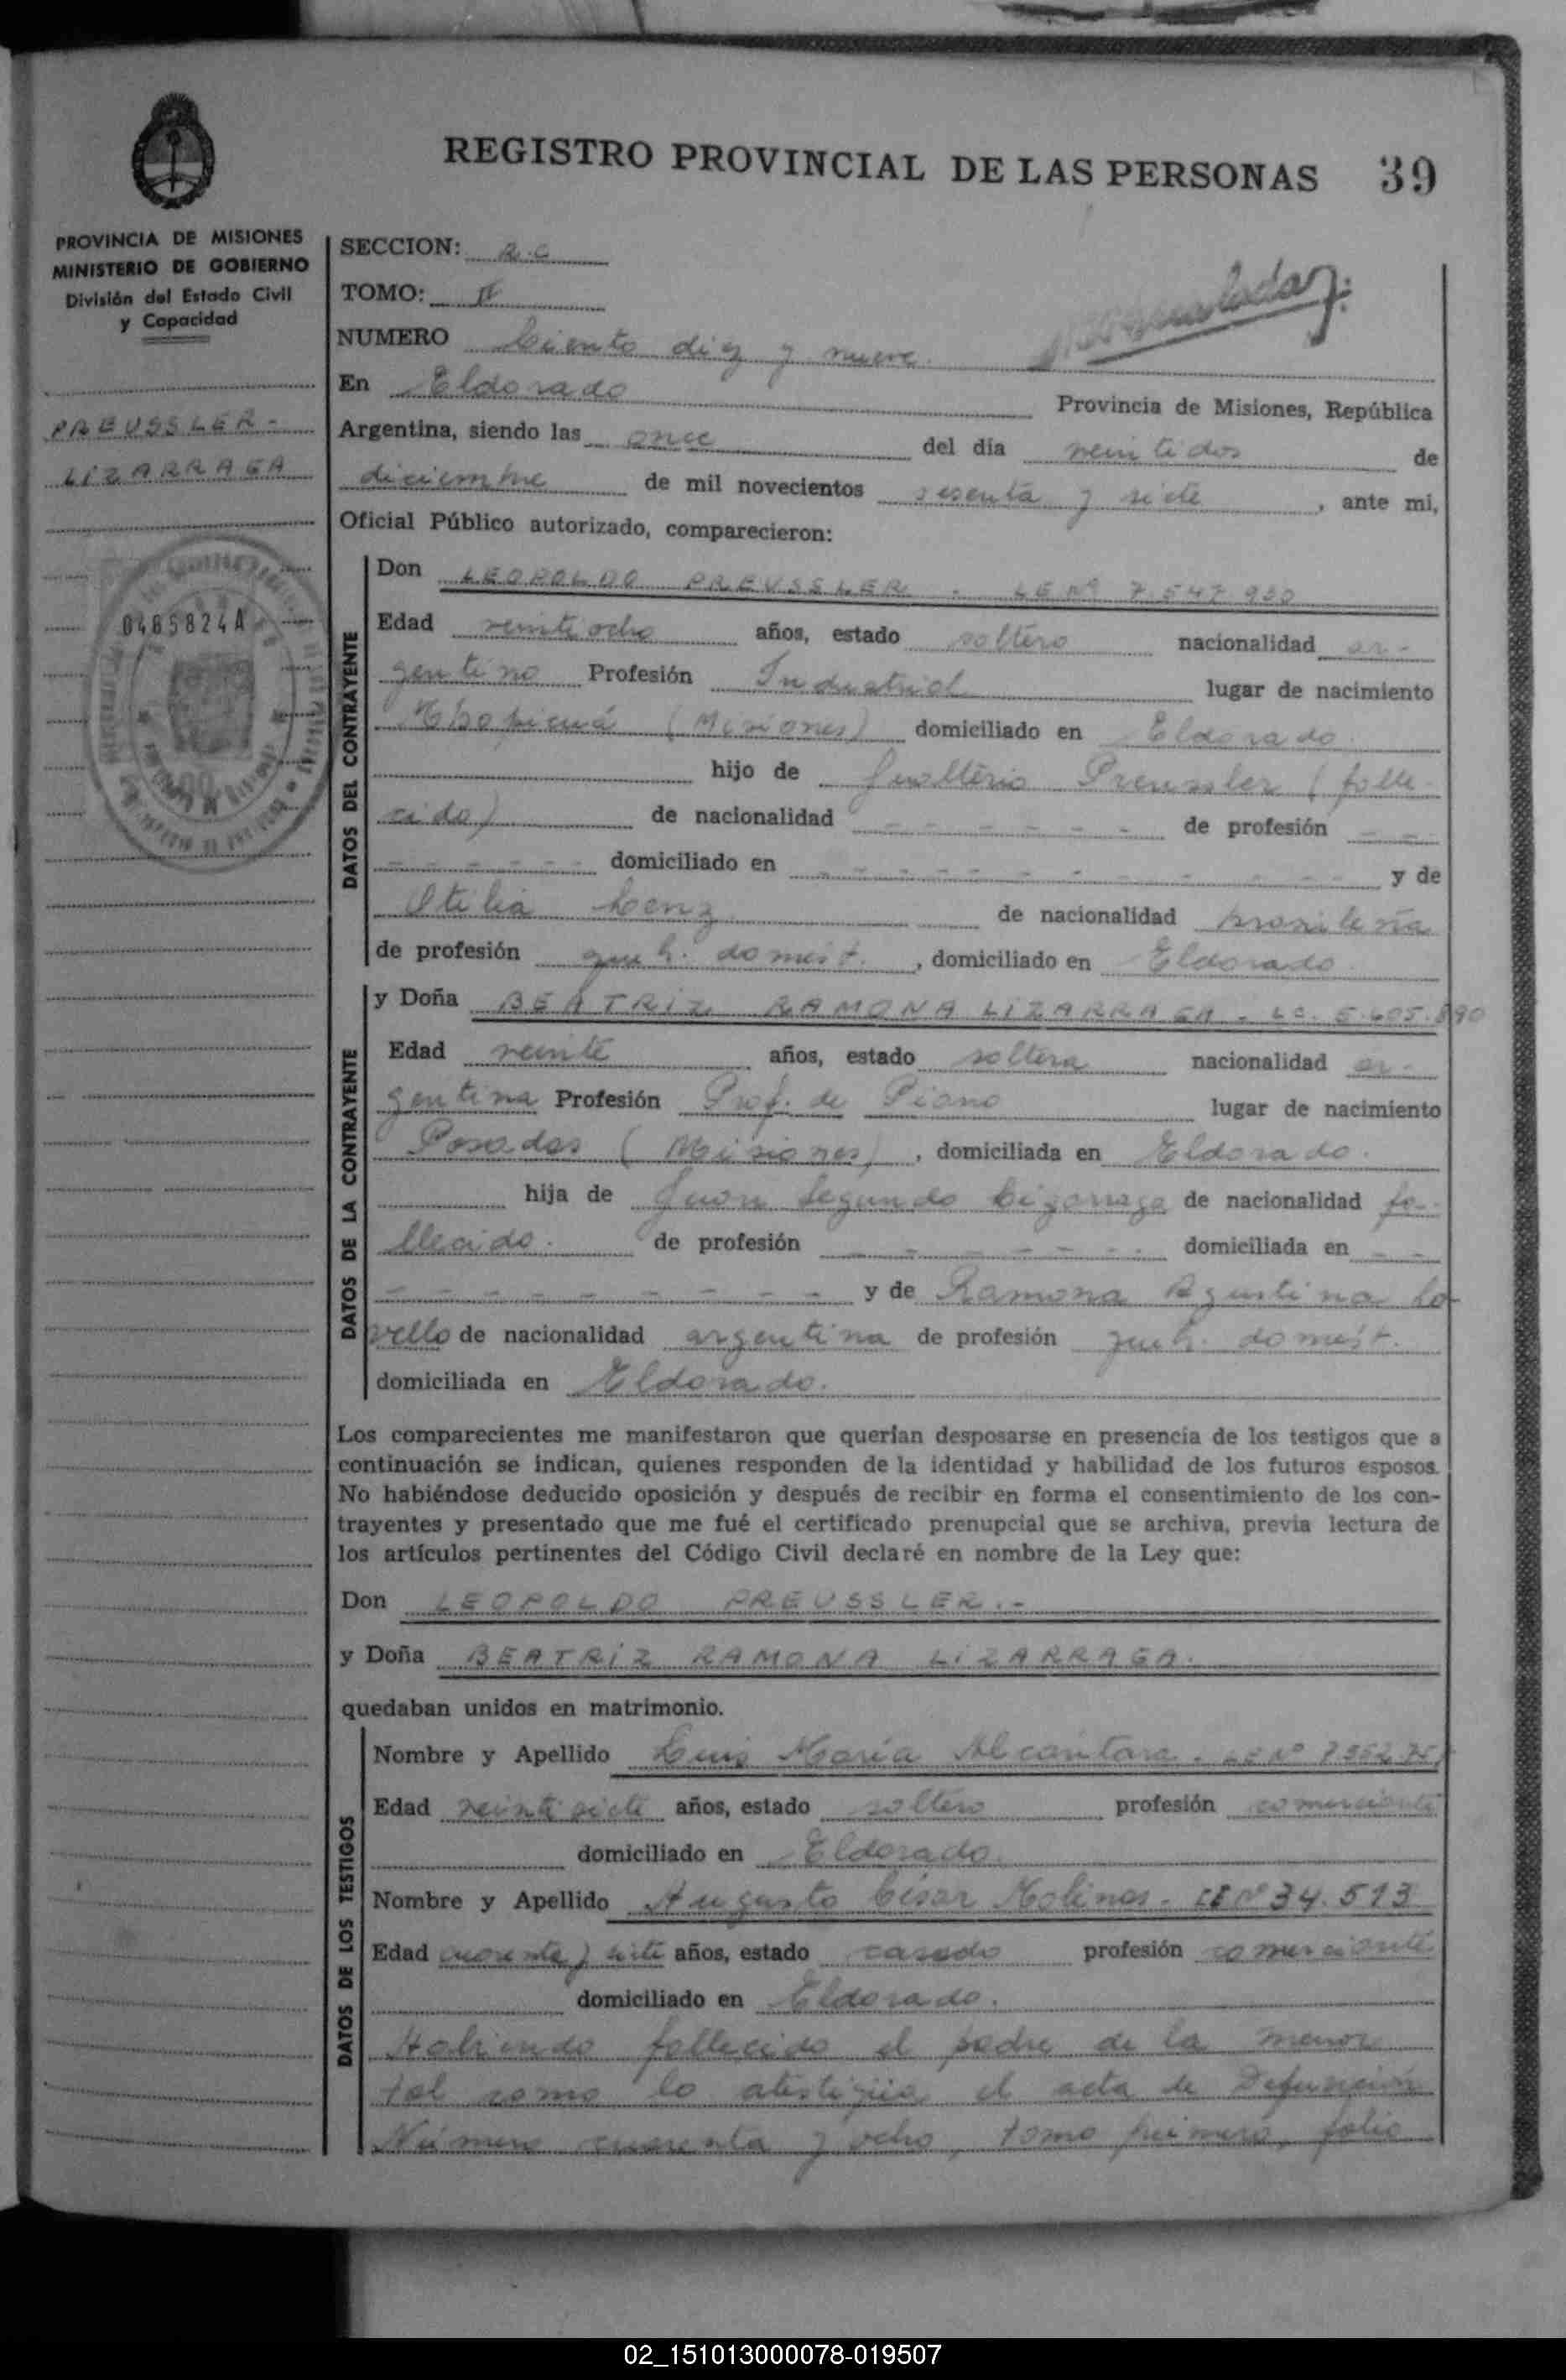 REGISTRO PROVINCIAL DE LAS PERSONAS 39
PROVINCIA DE MISIONES
MINISTERIO DE GOBIERNO
División del Estado Civil
y Capacidad
PREUSSLER -
LIZARRAGA
0485824A
SECCION: R.C
TOMO: II
NUMERO Ciento diez y nueve.
En Eldorado Provincia de Misiones, República
Argentina, siendo las once del día veintidos de
diciembre de mil novecientos sesenta y siete, ante mi,
Oficial Público autorizado, comparecieron:
DATOS DEL CONTRAYENTE
Don LEOPOLDO PREUSSLER. LE Nº 7.547.950
Edad veintiocho años, estado soltero nacionalidad ar-
gentino Profesión Industrial lugar de nacimiento
(Misiones) domiciliado en Eldorado.
hijo de Gualterio Preussler (falle-
cido) de nacionalidad - - - - - - - de profesión - -
- - - - - - domiciliado en - - - - - - - - y de
Otilia Lenz de nacionalidad brasileña
de profesión queh. domést., domiciliado en Eldorado.
DATOS DE LA CONTRAYENTE
y Doña BEATRIZ RAMONA LIZARRAGA - LC. 5.605.890
Edad veinte años, estado soltera nacionalidad ar-
gentina Profesión Prof. de Piano lugar de nacimiento
Posadas (Misiones), domiciliada en Eldorado.
hija de Juan Segundo Lizarraga de nacionalidad fa-
llecido. de profesión - - - - - - domiciliada en - -
- - - - - - - - - y de Ramona Agustina Lo-
vello de nacionalidad argentina de profesión queh. domést.
domiciliada en Eldorado.
Los comparecientes me manifestaron que querían desposarse en presencia de los testigos que a
continuación se indican, quienes responden de la identidad y habilidad de los futuros esposos.
No habiéndose deducido oposición y después de recibir en forma el consentimiento de los con-
trayentes y presentado que me fué el certificado prenupcial que se archiva, previa lectura de
los artículos pertinentes del Código Civil declaré en nombre de la Ley que:
Don LEOPOLDO PREUSSLER.-
y Doña BEATRIZ RAMONA LIZARRAGA.
quedaban unidos en matrimonio.
DATOS DE LOS TESTIGOS
Nombre y Apellido Luis María Alcantara. LE Nº
Edad veintisiete años, estado soltero profesión comerciante
domiciliado en Eldorado.
Nombre y Apellido Augusto César Molinas - CE Nº 34.513
Edad cuarenta y siete años, estado casado profesión comerciante
domiciliado en Eldorado.
Habiendo fallecido el padre de la menor
tal como lo atestigüa el acta de Defunción
Número cuarenta y ocho, tomo primero, folio
02_151013000078-019507